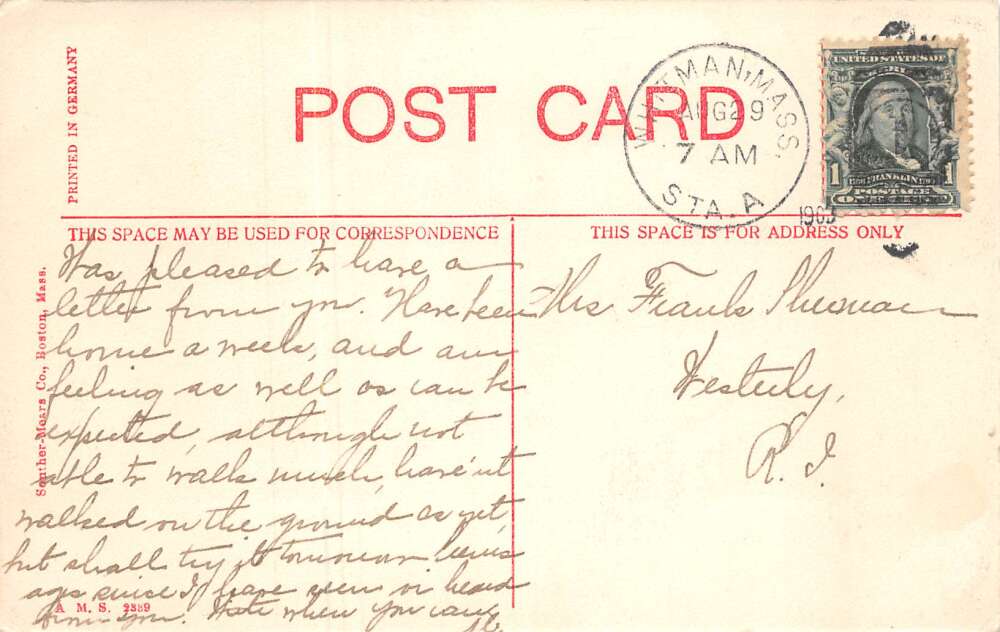 PRINTED IN GERMANY
POST CARD
WHITMAN, MASS.
AUG 29
7 AM
STA. A
UNITED STATES OF
FRANKLIN
1 1
POSTAGE
THIS SPACE MAY BE USED FOR CORRESPONDENCE
THIS SPACE IS FOR ADDRESS ONLY
Souther-Mears Co., Boston, Mass.
Was pleased to have a
letter from you. Have been
home a week, and am
feeling as well as can be
expected, although not
able to walk much, have'nt
walked on the ground as yet,
but shall try it tomorrow
ages since I have seen or heard
from you. Write when you can
Mrs Frank
Westerly,
R. I.
A. M. S. 2389